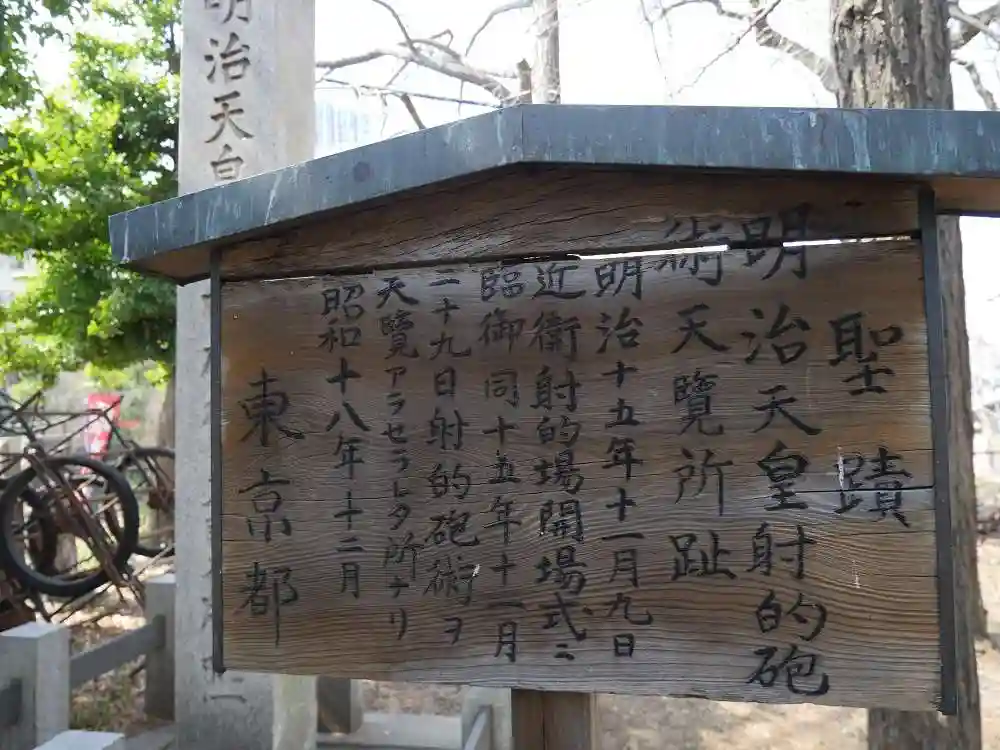 聖蹟
明治天皇射的砲
術天覽所趾
明治十五年十一月九日
近衛射的場開場式ニ
臨御同十五年十一月
二十九日射的砲術ヲ
天覽アラセラレタ所ナリ
昭和十八年十二月
東京都
明治天皇